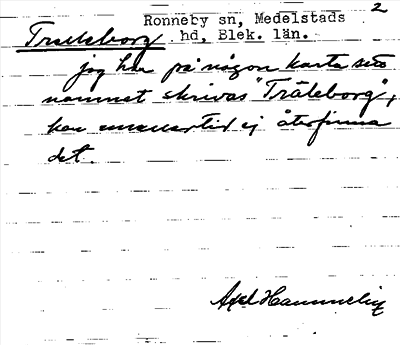 2
Ronneby sn, Medelstads
Traelsborg hd, Blek. län.
jag har på någon karta sett
namnet skrivas "Träleborg",
kan emellertid ej återfinna
det.
Axel